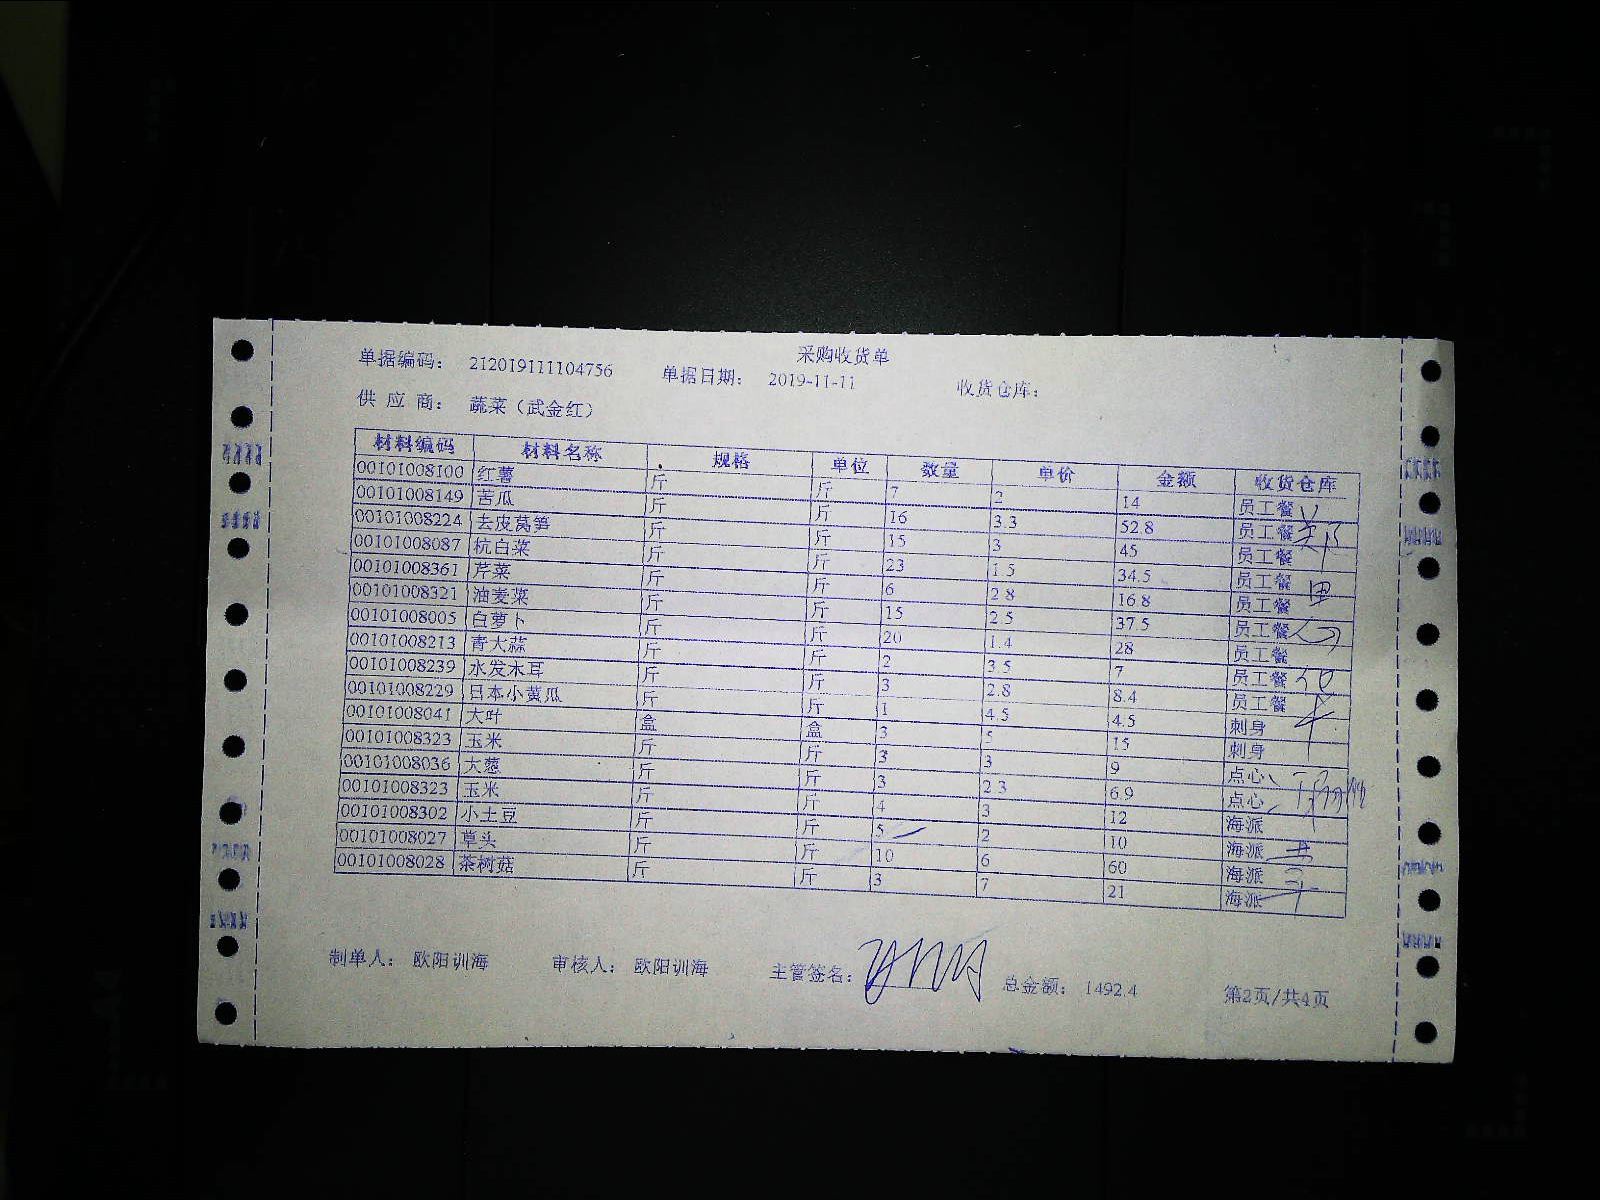 采购收货单
单据编码： 212019111104756 单据日期： 2019-11-11 收货仓库：
供 应 商： 蔬菜（武金红）
材料编码 材料名称 规格 单位 数量 单价 金额 收货仓库
00101008100 红薯 斤 斤 7 2 14 员工餐
00101008149 苦瓜 斤 斤 16 3.3 52.8 员工餐
00101008224 去皮莴笋 斤 斤 15 3 45 员工餐
00101008087 杭白菜 斤 斤 23 1.5 34.5 员工餐
00101008361 芹菜 斤 斤 6 2.8 16.8 员工餐
00101008321 油麦菜 斤 斤 15 2.5 37.5 员工餐
00101008005 白萝卜 斤 斤 20 1.4 28 员工餐
00101008213 青大蒜 斤 斤 2 3.5 7 员工餐
00101008239 水发木耳 斤 斤 3 2.8 8.4 员工餐
00101008229 日本小黄瓜 斤 斤 1 4.5 4.5 刺身
00101008041 大叶 盒 盒 3 5 15 刺身
00101008323 玉米 斤 斤 3 3 9 点心
00101008036 大葱 斤 斤 3 2.3 6.9 点心
00101008323 玉米 斤 斤 4 3 12 海派
00101008302 小土豆 斤 斤 5 2 10 海派
00101008027 草头 斤 斤 10 6 60 海派
00101008028 茶树菇 斤 斤 3 7 21 海派
制单人： 欧阳训海 审核人： 欧阳训海 主管签名： 总金额： 1492.4 第2页/共4页